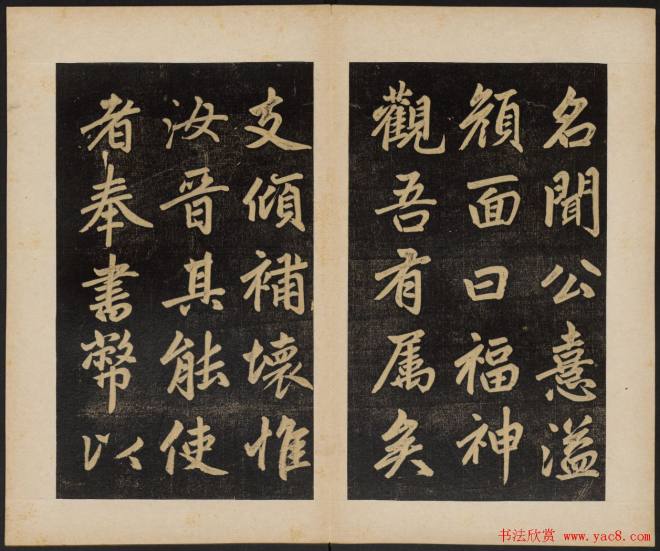 名聞公憙溢
顏面曰福神
觀吾有属矣
支傾補壞惟
汝晉其能使
者奉書幣以
书法欣赏 www.yac8.com